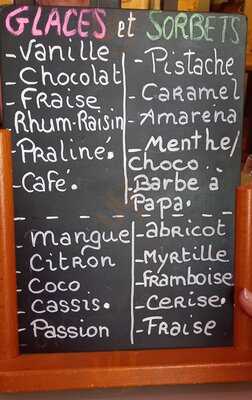 GLACES et SORBETS
-Vanille
-Chocolat
-Fraise
Rhum-Raisin
-Praliné.
-Café.
-Pistache
-Caramel
-Amarena
-Menthe/
choco
-Barbe à
Papa.
-mangue
-Citron
-Coco
-cassis.
-Passion
-abricot
-Myrtille
-framboise
-Cerise.
-Fraise